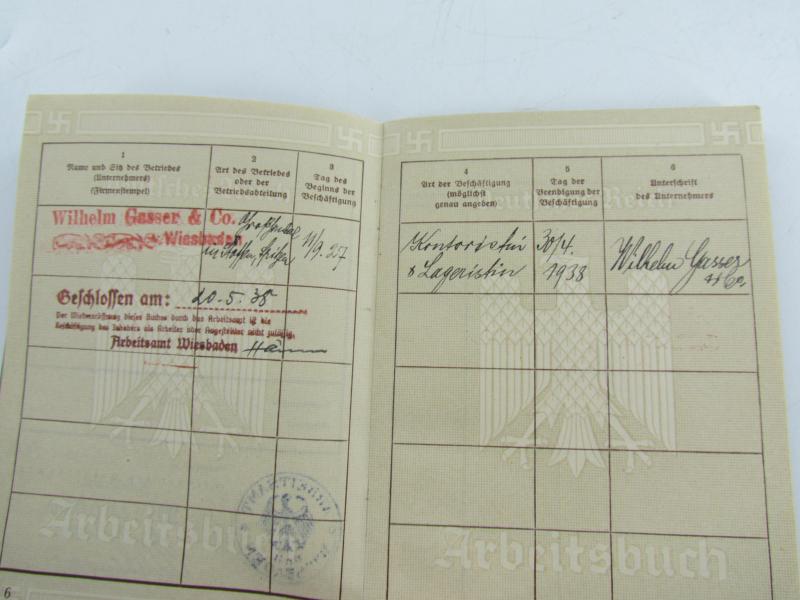 1
Name und Sitz des Betriebes
(Unternehmers)
(Firmenstempel)
2
Art des Betriebes
oder der
Betriebsabteilung
3
Tag des
Beginns der
Beschäftigung
Wilhelm Gasser & Co.
Wiesbaden
11/9.27
Geschlossen am: 20.5.38
Der Wiedereröffnung dieses Buches durch das Arbeitsamt ist die
Beschäftigung des Inhabers als Arbeiter oder Angestellter nicht zulässig.
Arbeitsamt Wiesbaden
Arbeitsbuch
6
4
Art der Beschäftigung
(möglichst
genau angeben)
5
Tag der
Beendigung der
Beschäftigung
6
Unterschrift
des Unternehmers
Kontoristin
& Lageristin
30/4.
1938
Wilhelm Gasser
& Co.
Arbeitsbuch